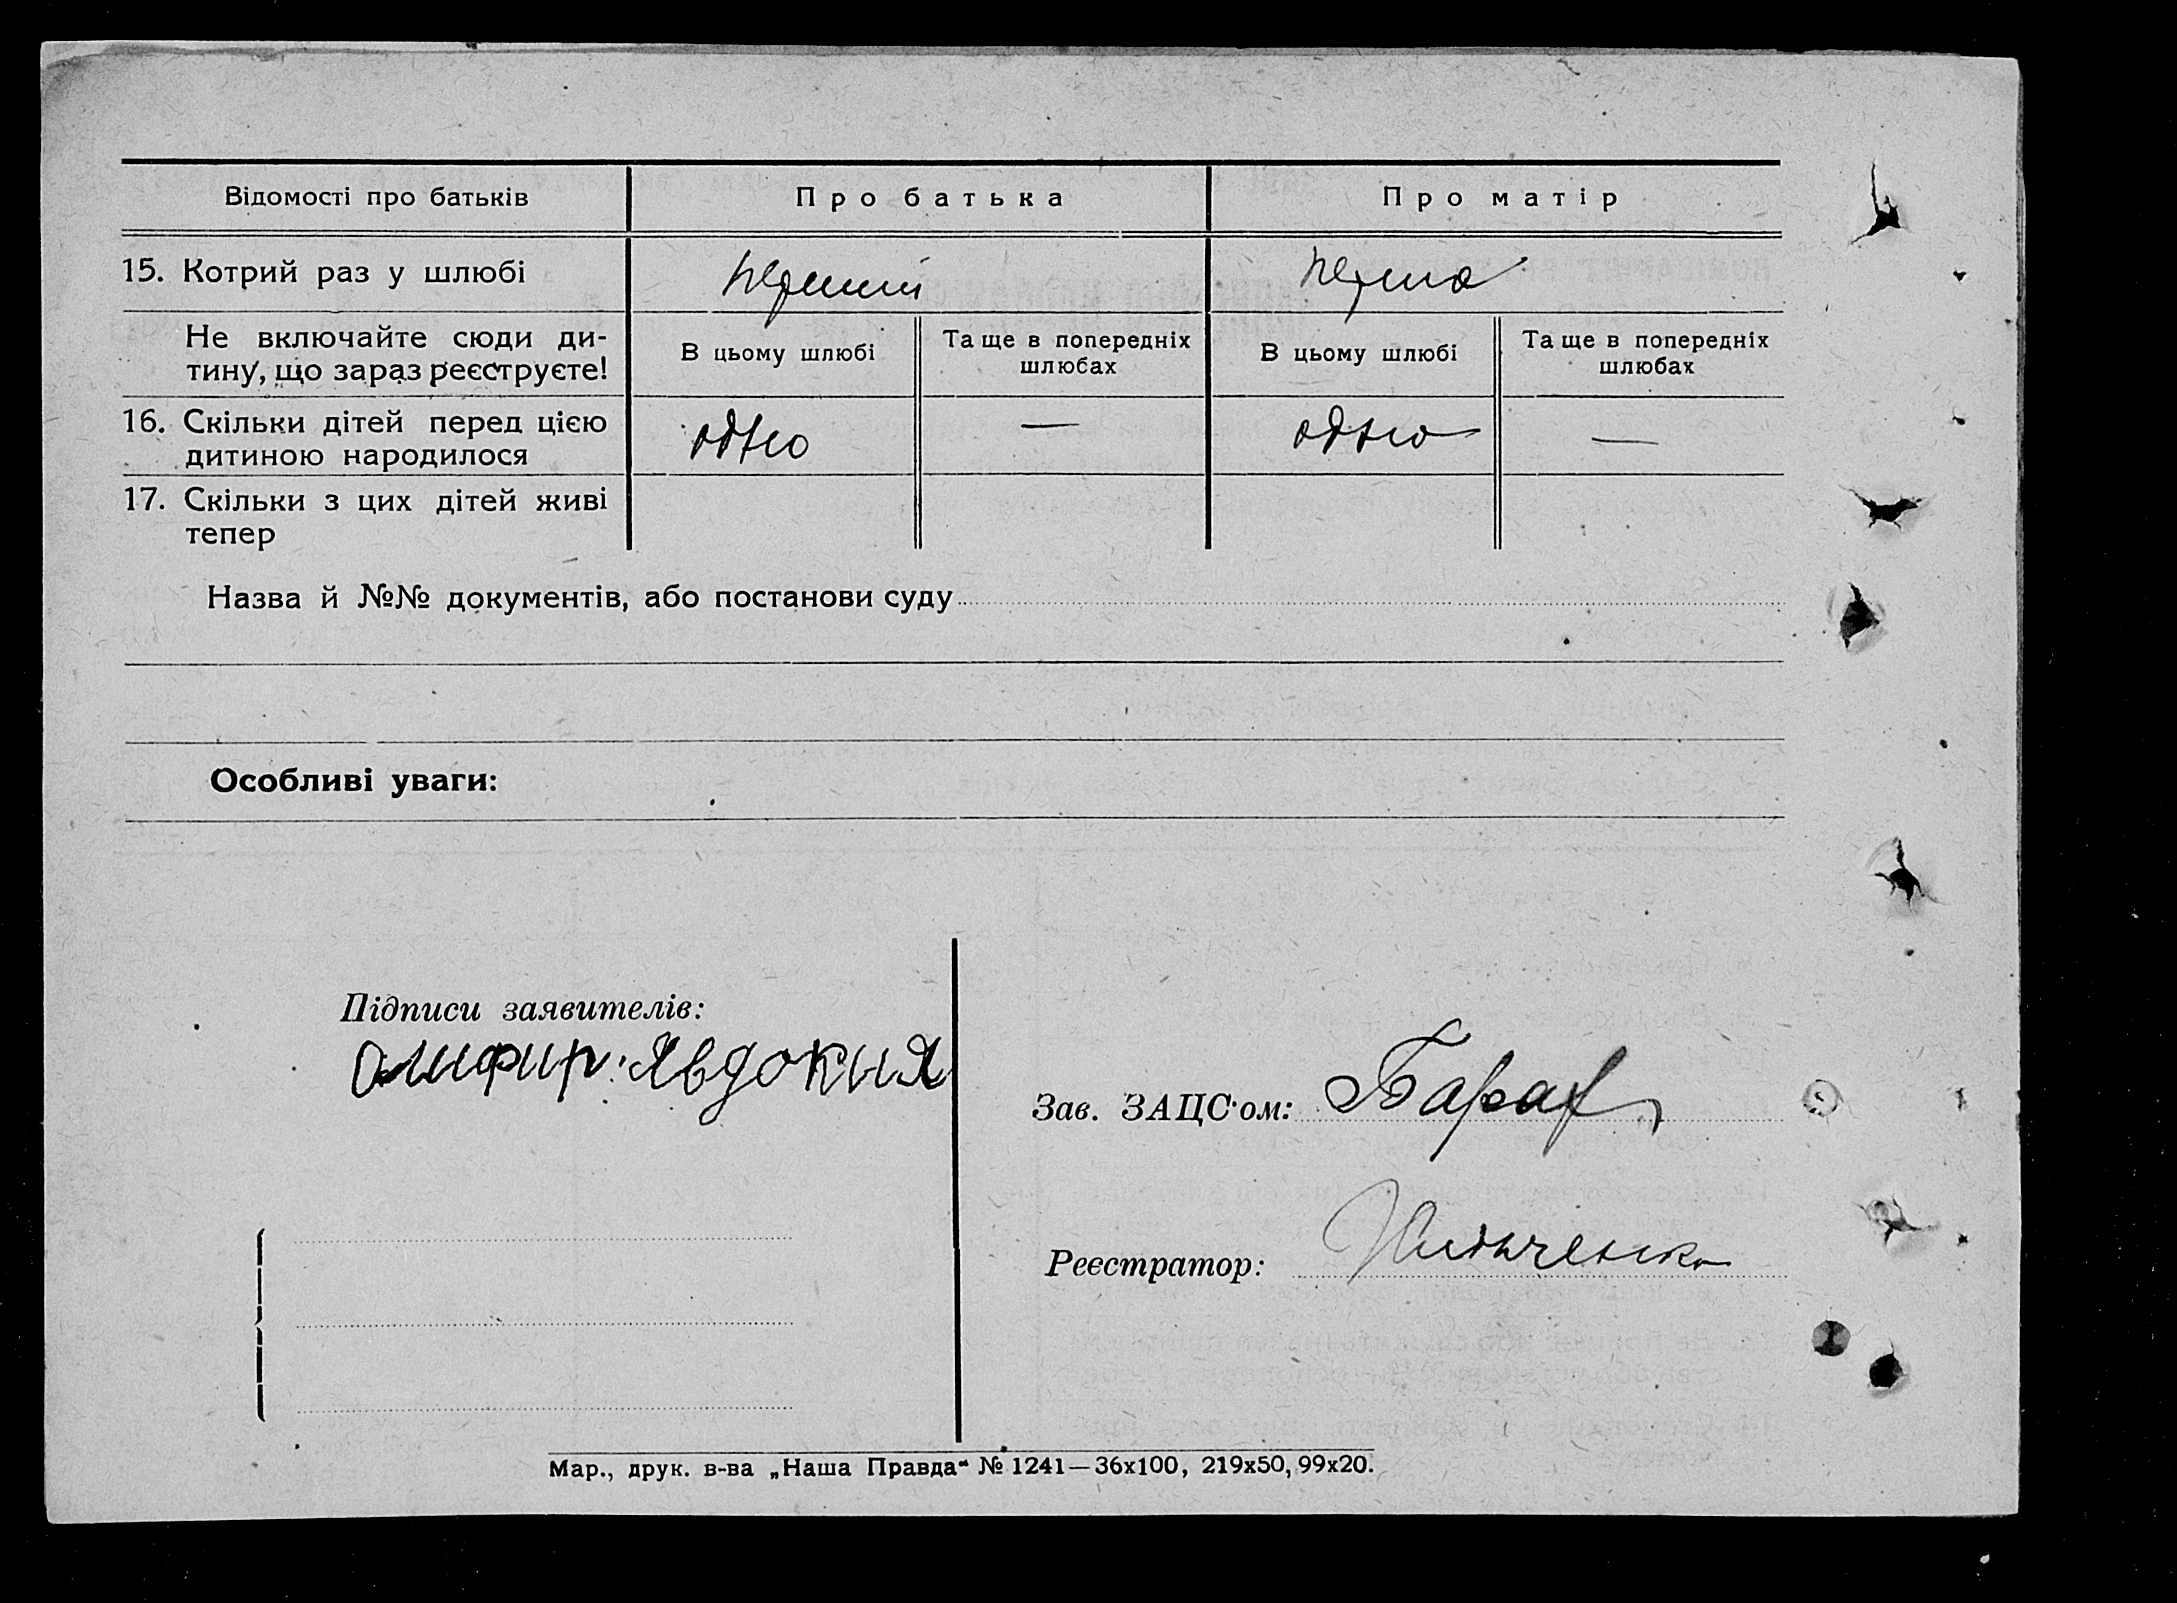 Відомості про батьків Про батька Про матір
15. Котрий раз у шлюбі перший перша
Не включайте сюди ди-
тину, що зараз реєструєте!
В цьому шлюбі Та ще в попередніх
шлюбах
В цьому шлюбі Та ще в попередніх
шлюбах
16. Скільки дітей перед цією
дитиною народилося
одно — одно —
17. Скільки з цих дітей живі
тепер
Назва й №№ документів, або постанови суду
Особливі уваги:
Підписи заявителів:
Олифир Явдокия
Зав. ЗАЦС'ом:
Реєстратор:
Мар., друк. в-ва „Наша Правда“ № 1241—36х100, 219х50, 99х20.